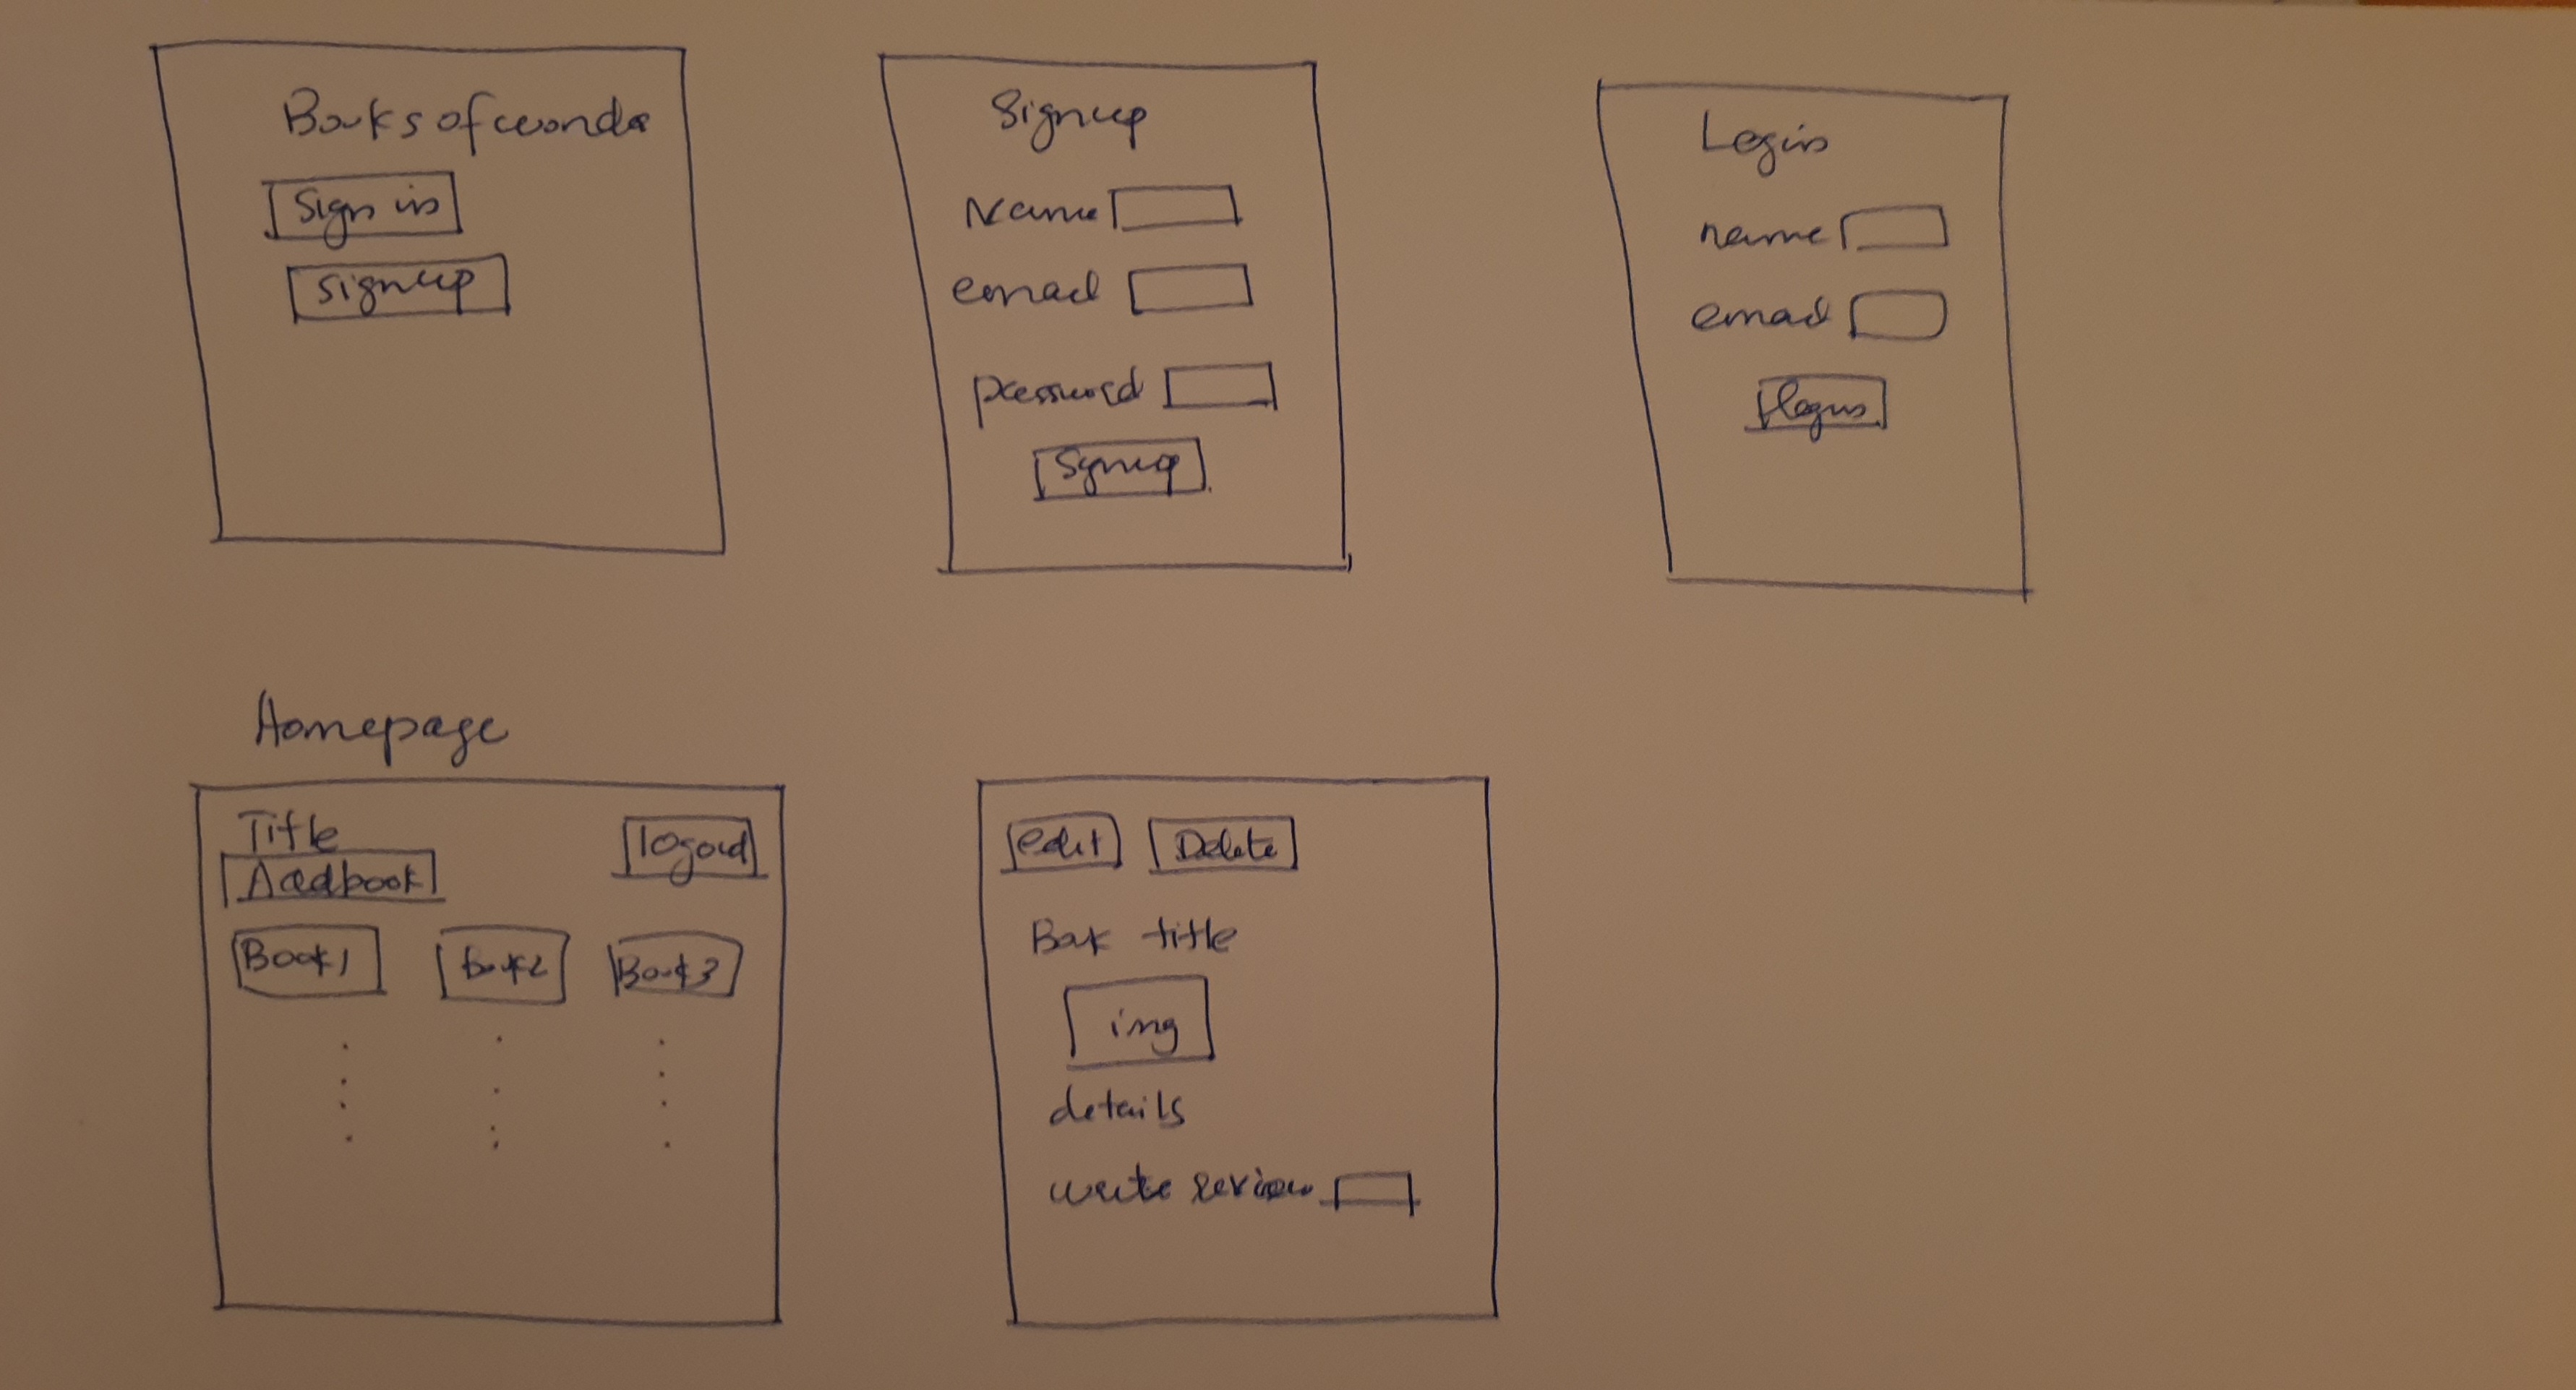 Books of wonder
Sign in
Signup
Signup
Name
email
password
Signup
Login
name
email
login
Homepage
Title
Addbook
logout
Book1
Book2
Book3
edit
Delete
Book title
img
details
write review